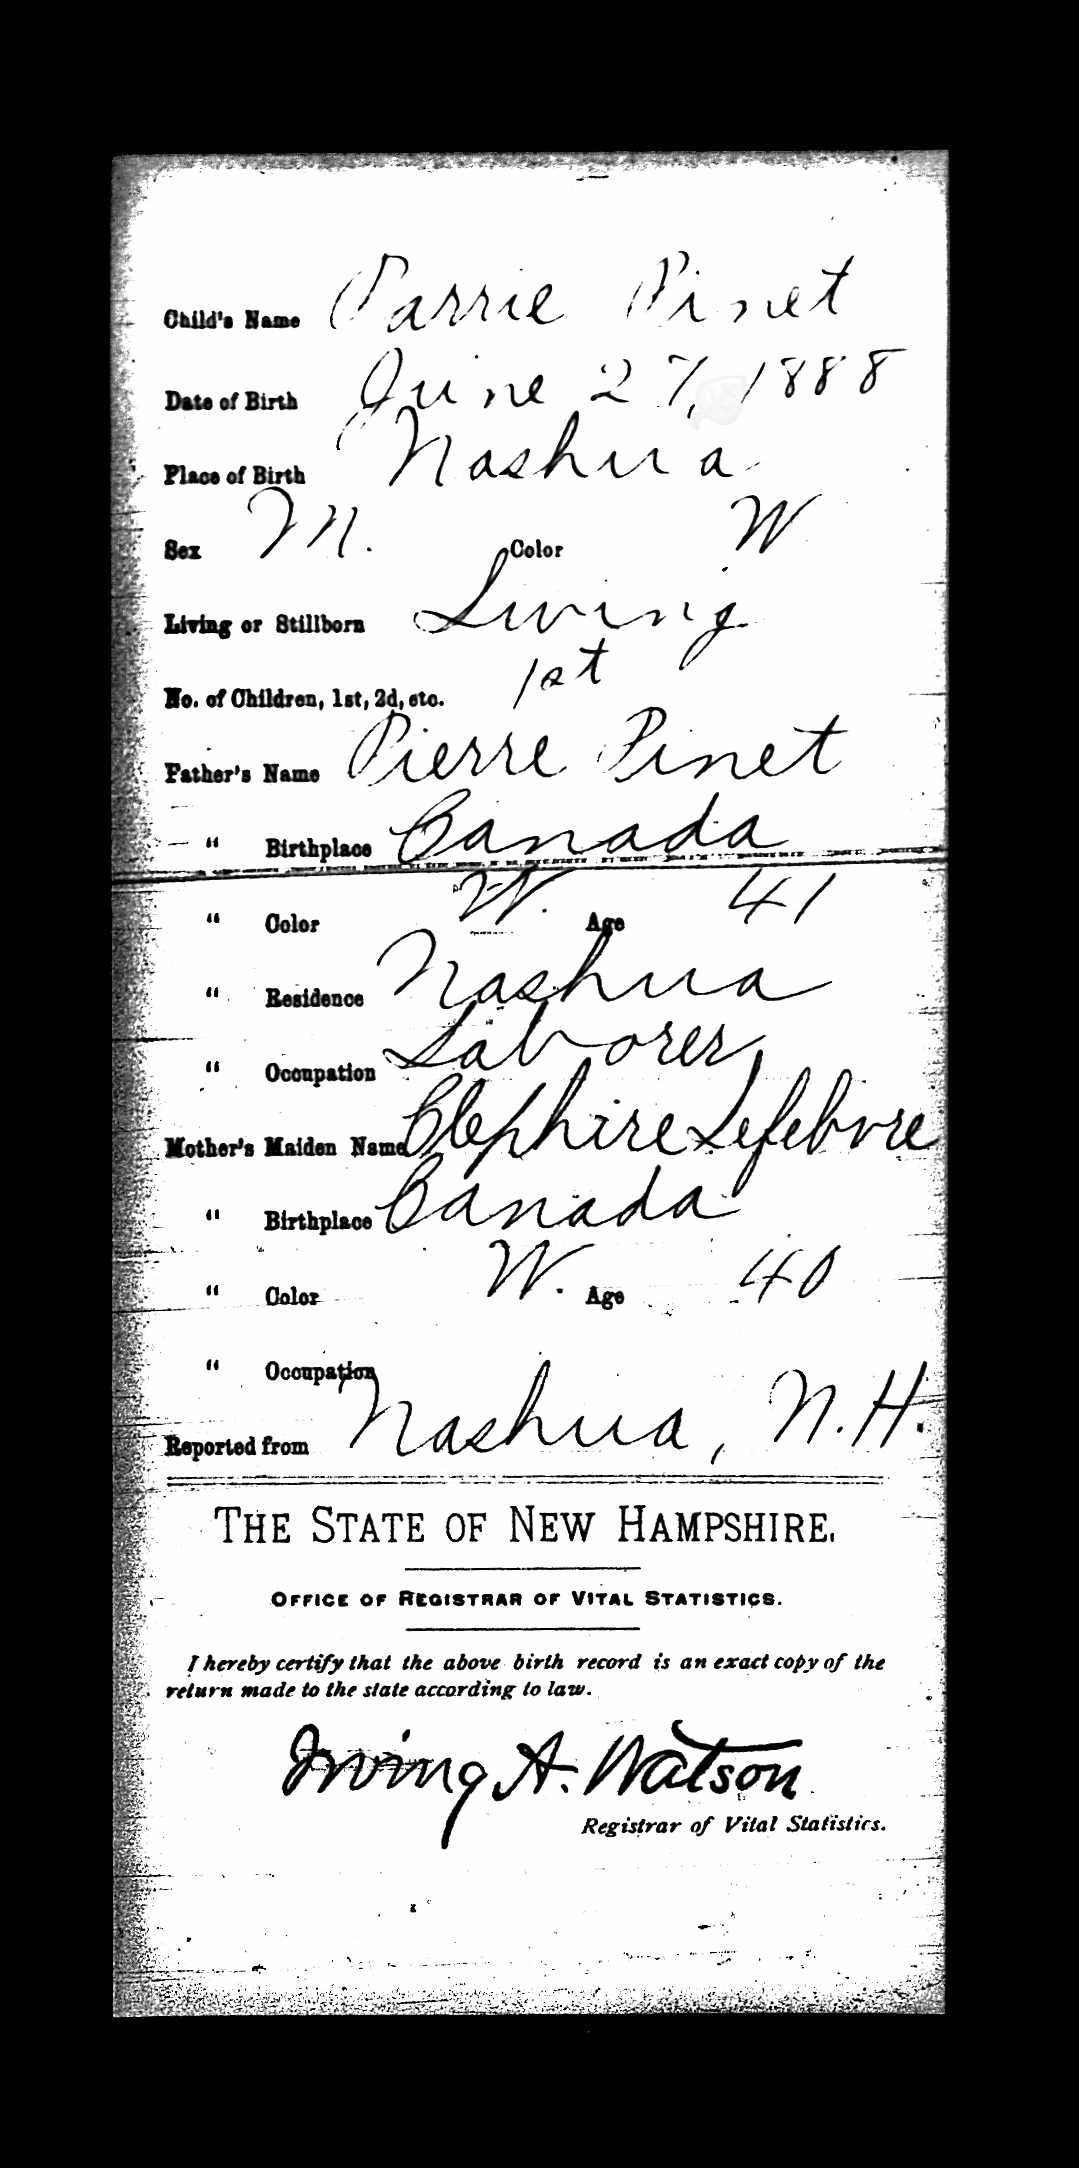 Child's Name Parrie Pinet
Date of Birth June 27, 1888
Place of Birth Nashua
Sex M. Color W
Living or Stillborn Living
No. of Children, 1st, 2d, etc. 1st
Father's Name Pierre Pinet
" Birthplace Canada
" Color W. Age 41
" Residence Nashua
" Occupation Laborer
Mother's Maiden Name Clephire Lefebvre
" Birthplace Canada
" Color W. Age 40
" Occupation
Reported from Nashua, N.H.
THE STATE OF NEW HAMPSHIRE.
OFFICE OF REGISTRAR OF VITAL STATISTICS.
I hereby certify that the above birth record is an exact copy of the
return made to the state according to law.
Irving A. Watson
Registrar of Vital Statistics.